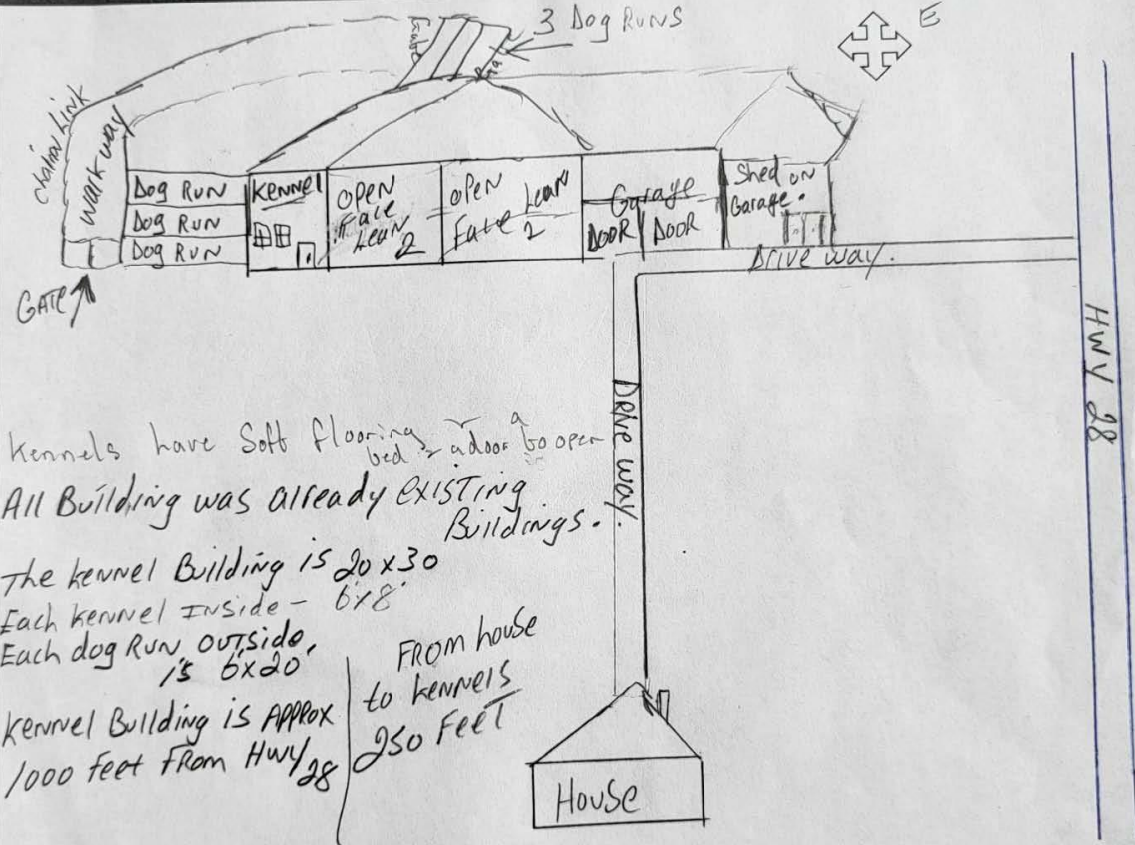 3 Dog Runs
E
Gate
Chain Link
Walkway
Dog Run
Dog Run
Dog Run
Kennel
Open
Face
Lean
2
Open
Face Lean
2
Garage
Door
Door
Shed on
Garage.
Gate
Drive way.
Hwy 28
Drive way.
Kennels have soft flooring
bed & a door to open
All Building was already existing
Buildings.
The kennel Building is 20 x 30
Each kennel Inside - 6x8
Each dog Run outside,
is 6x20
Kennel Building is Approx
1000 feet From Hwy 28
From house
to kennels
250 Feet
House